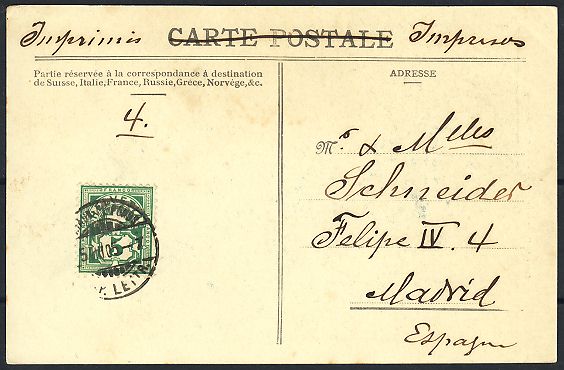 Imprimis CARTE POSTALE Impresos
Partie réservée à la correspondance à destination
de Suisse, Italie, France, Russie, Grece, Norvège, &c.
ADRESSE
4.
M.s & Melles
Schneider
Felipe IV. 4
Madrid
Espagne
FRANCO
5